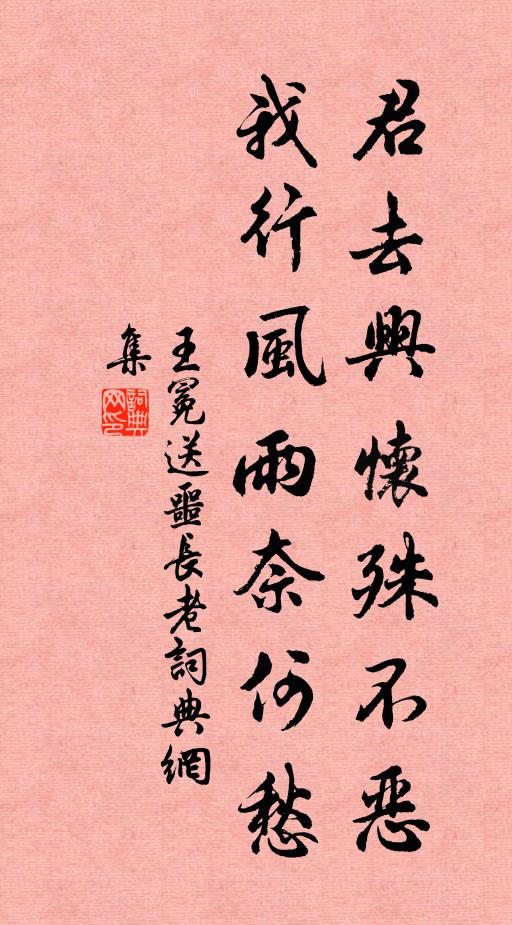 君去興懷殊不惡
我行風雨奈何愁
王冕送噩長老詞典網
集
詞典
网印